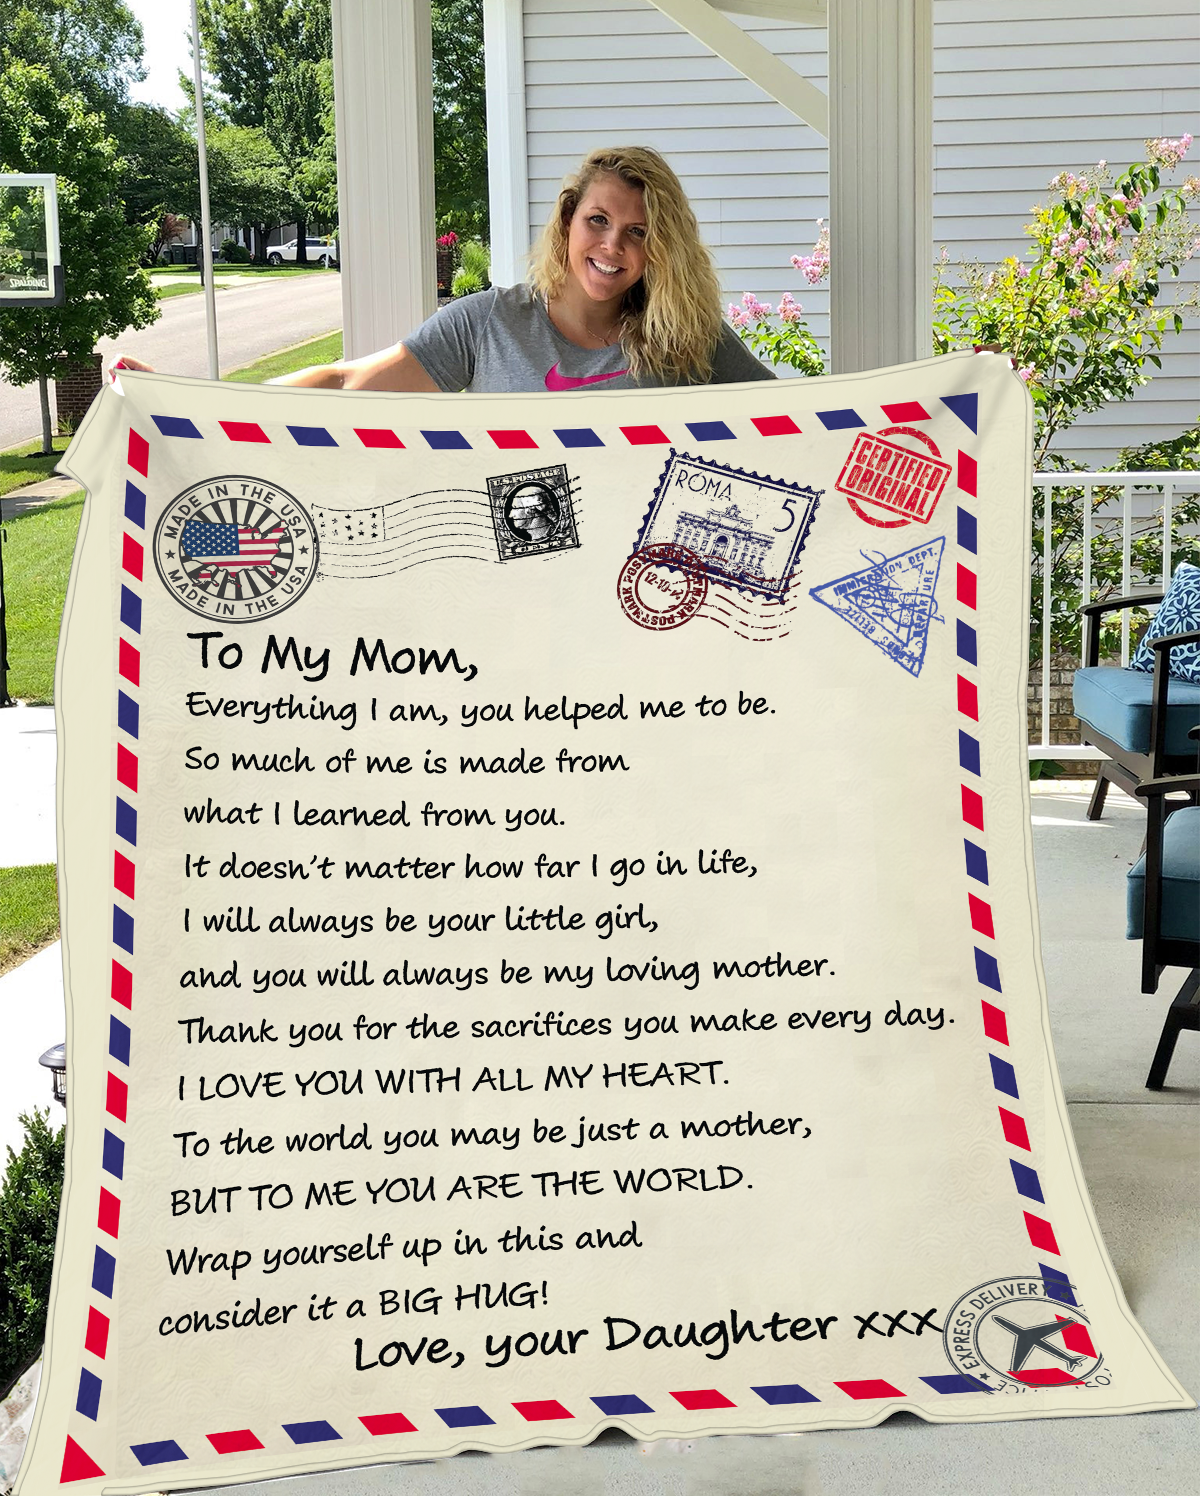 SPALDING
MADE IN THE USA
MADE IN THE USA
U.S. POSTAGE
ROMA
5
CERTIFIED
ORIGINAL
To My Mom,
Everything I am, you helped me to be.
So much of me is made from
what I learned from you.
It doesn't matter how far I go in life,
I will always be your little girl,
and you will always be my loving mother.
Thank you for the sacrifices you make every day.
I LOVE YOU WITH ALL MY HEART.
To the world you may be just a mother,
BUT TO ME YOU ARE THE WORLD.
Wrap yourself up in this and
consider it a BIG HUG!
Love, your Daughter xxx
EXPRESS DELIVERY